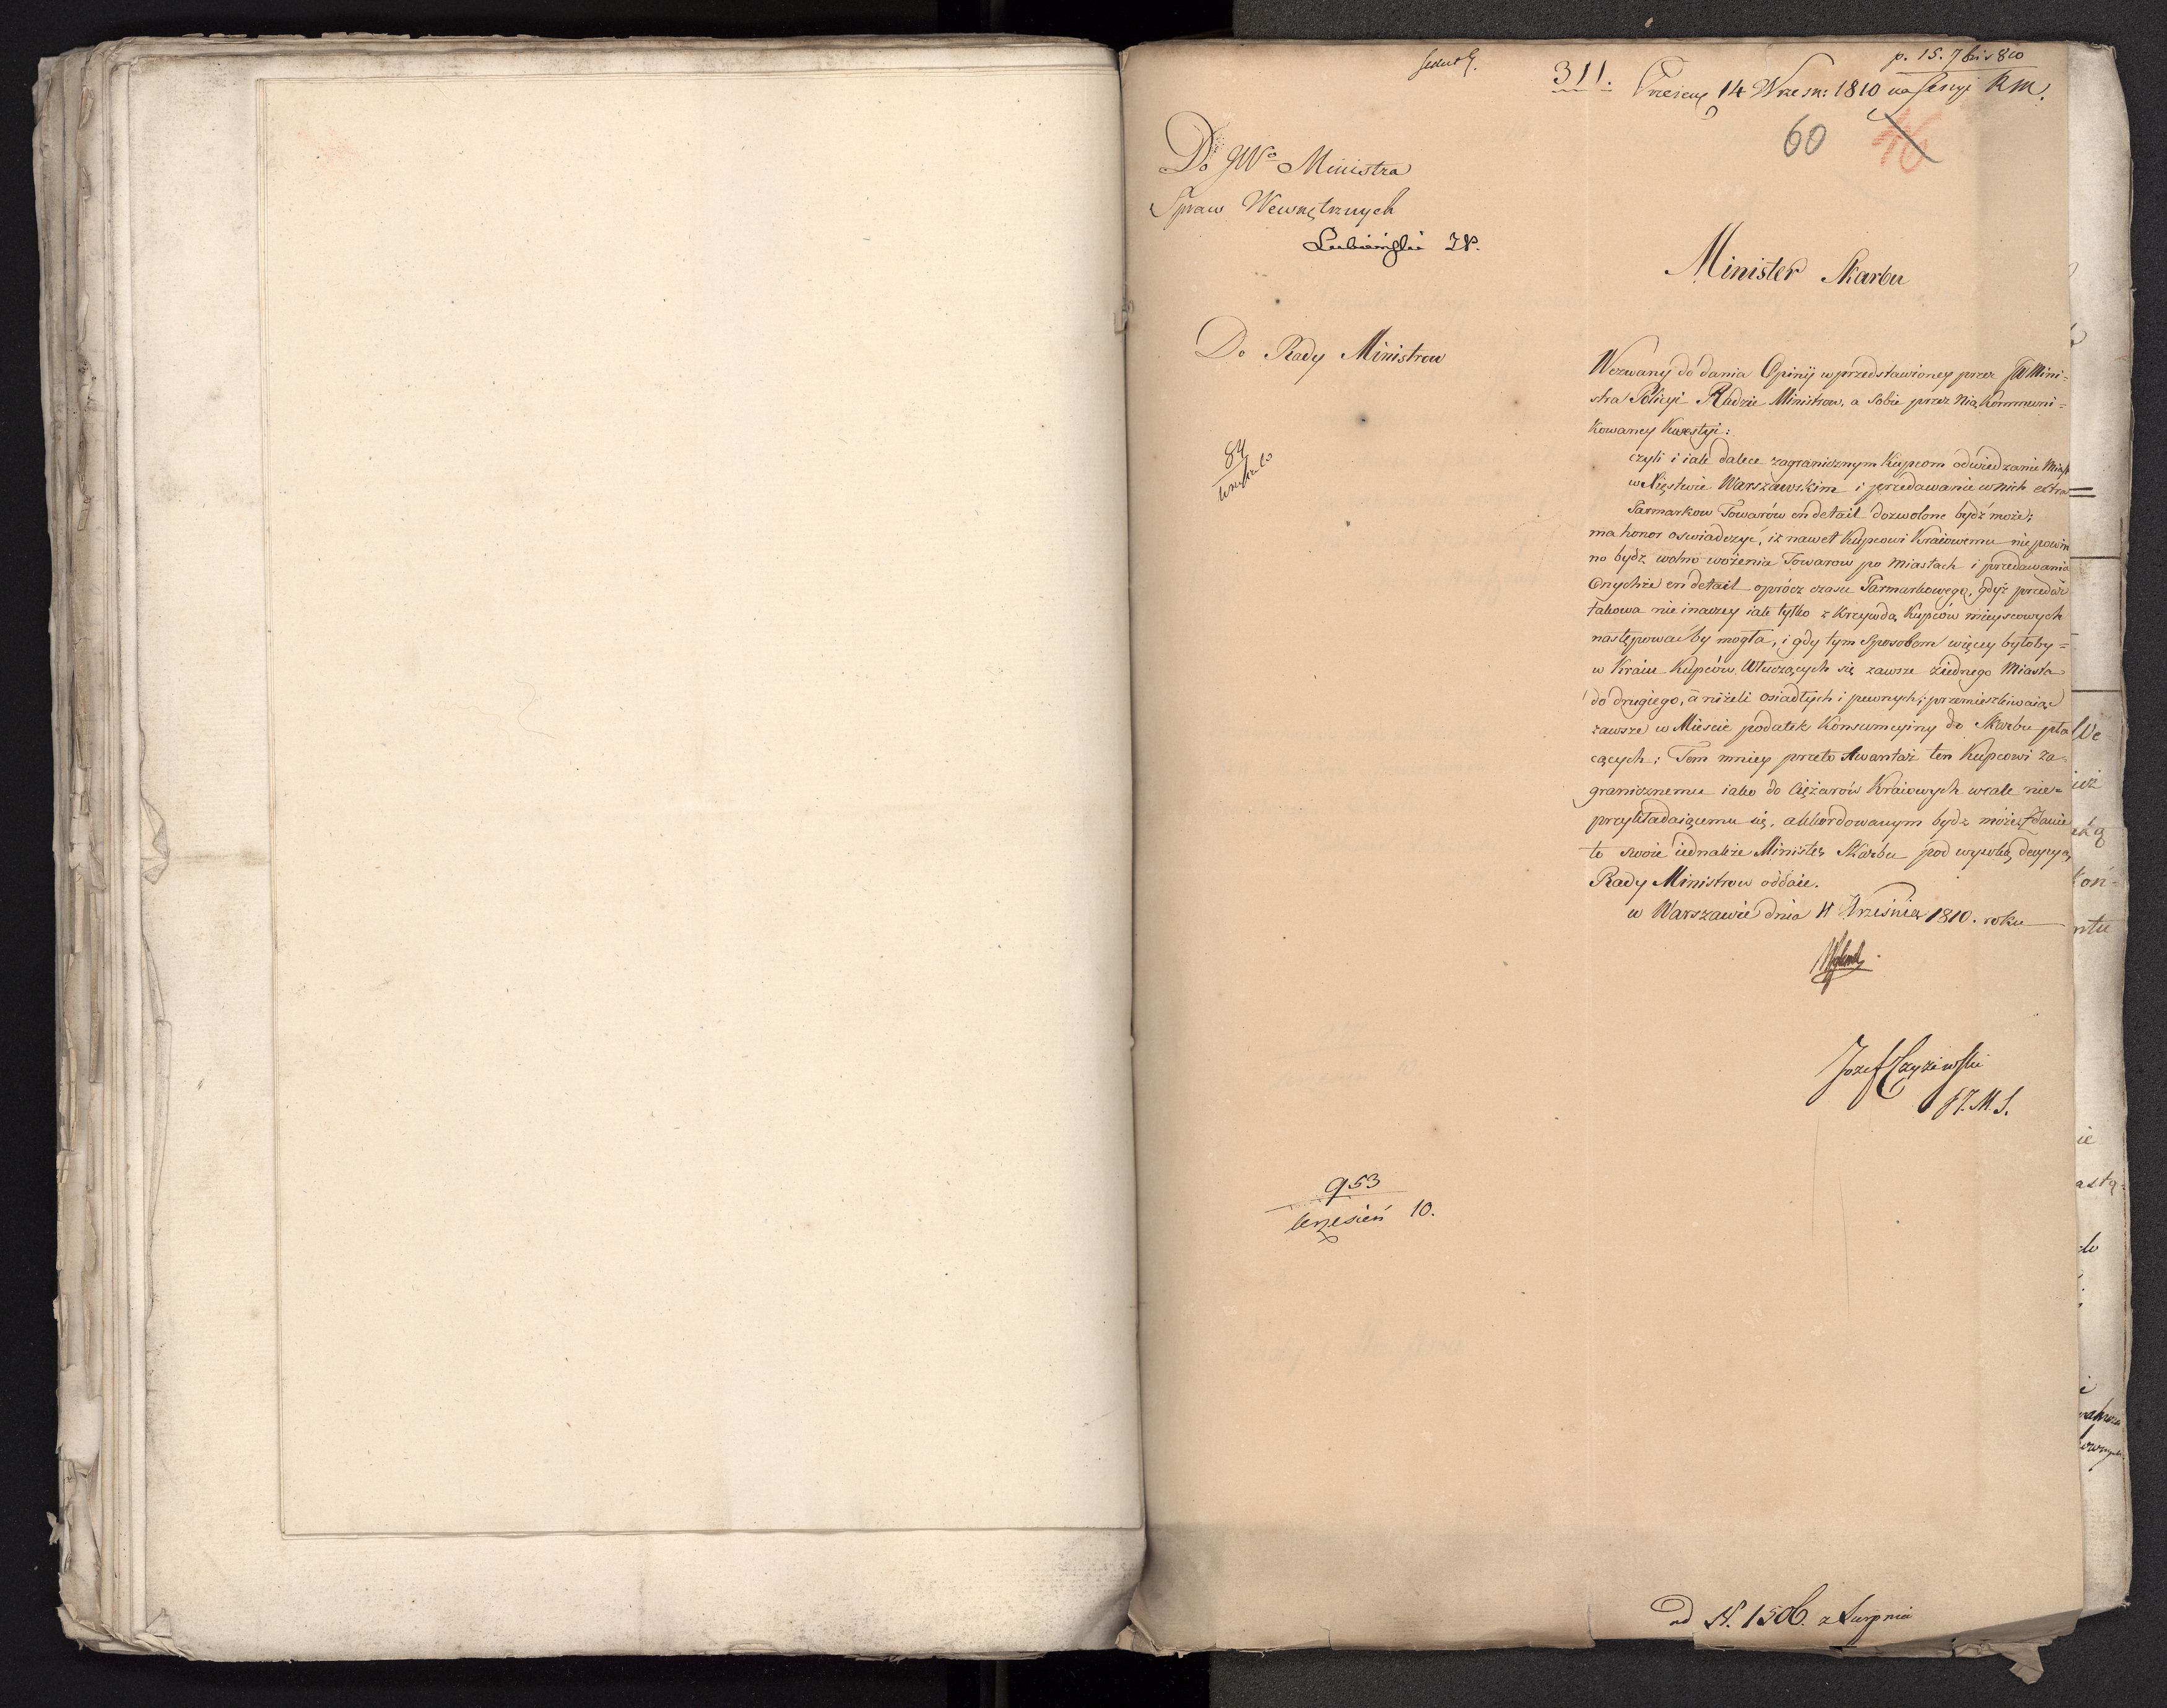 311.
p. 15. 7bris 810
14 Wrześn: 1810 na Sessyi RM.
60
16
Do JWo Ministra
Spraw Wewnętrznych
Lubieński
Minister Skarbu
Do Rady Ministrow
Wezwany do dania Opinij w przedstawioney przez JW Mini=
stra Policyi Radzie Ministrow, a Sobie przez Nią kommuni=
kowaney Kwestyi:
czyli i iak dalece zagranicznym Kupcom odwiedzanie Miast
w Xięstwie Warszawskim i przedawanie w nich extra
Jarmarkow Towarów en detail dozwolone bydź może;
ma honor oswiadczyć, iż nawet Kupcowi Kraiowemu nie powin
no bydz wolno wożenia Towarow po Miastach i przedawania
Onychże en detail oprócz czasu Jarmarkowego, gdyż przedaż
takowa nie inaczey iak tylko z Krzywdą Kupców mieyscowych
następować by mogła, i gdy tym Sposobem więcey byłoby=
w Kraiu Kupców Włuczących się zawsze z iednego Miasta
do drugiego, a niżeli osiadłych i pewnych, przemieszkiwaiąc
zawsze w Mieście podatek Konsumcyiny do Skarbu pła
cących: Tem mniey przeto Awantaż ten Kupcowi za=
granicznemu iako do Ciężarów Kraiowych wcale nie=
przykładaiącemu się, akkordowanym bydz może. Zdanie
to swoie iednakże Minister Skarbu pod wysoką decyzyą
Rady Ministrow oddaie.
w Warszawie dnia 11 Września 1810. roku
84
Józef Czyżewski
953
Wrzesień 10.
ad N. 1506. z Sierpnia